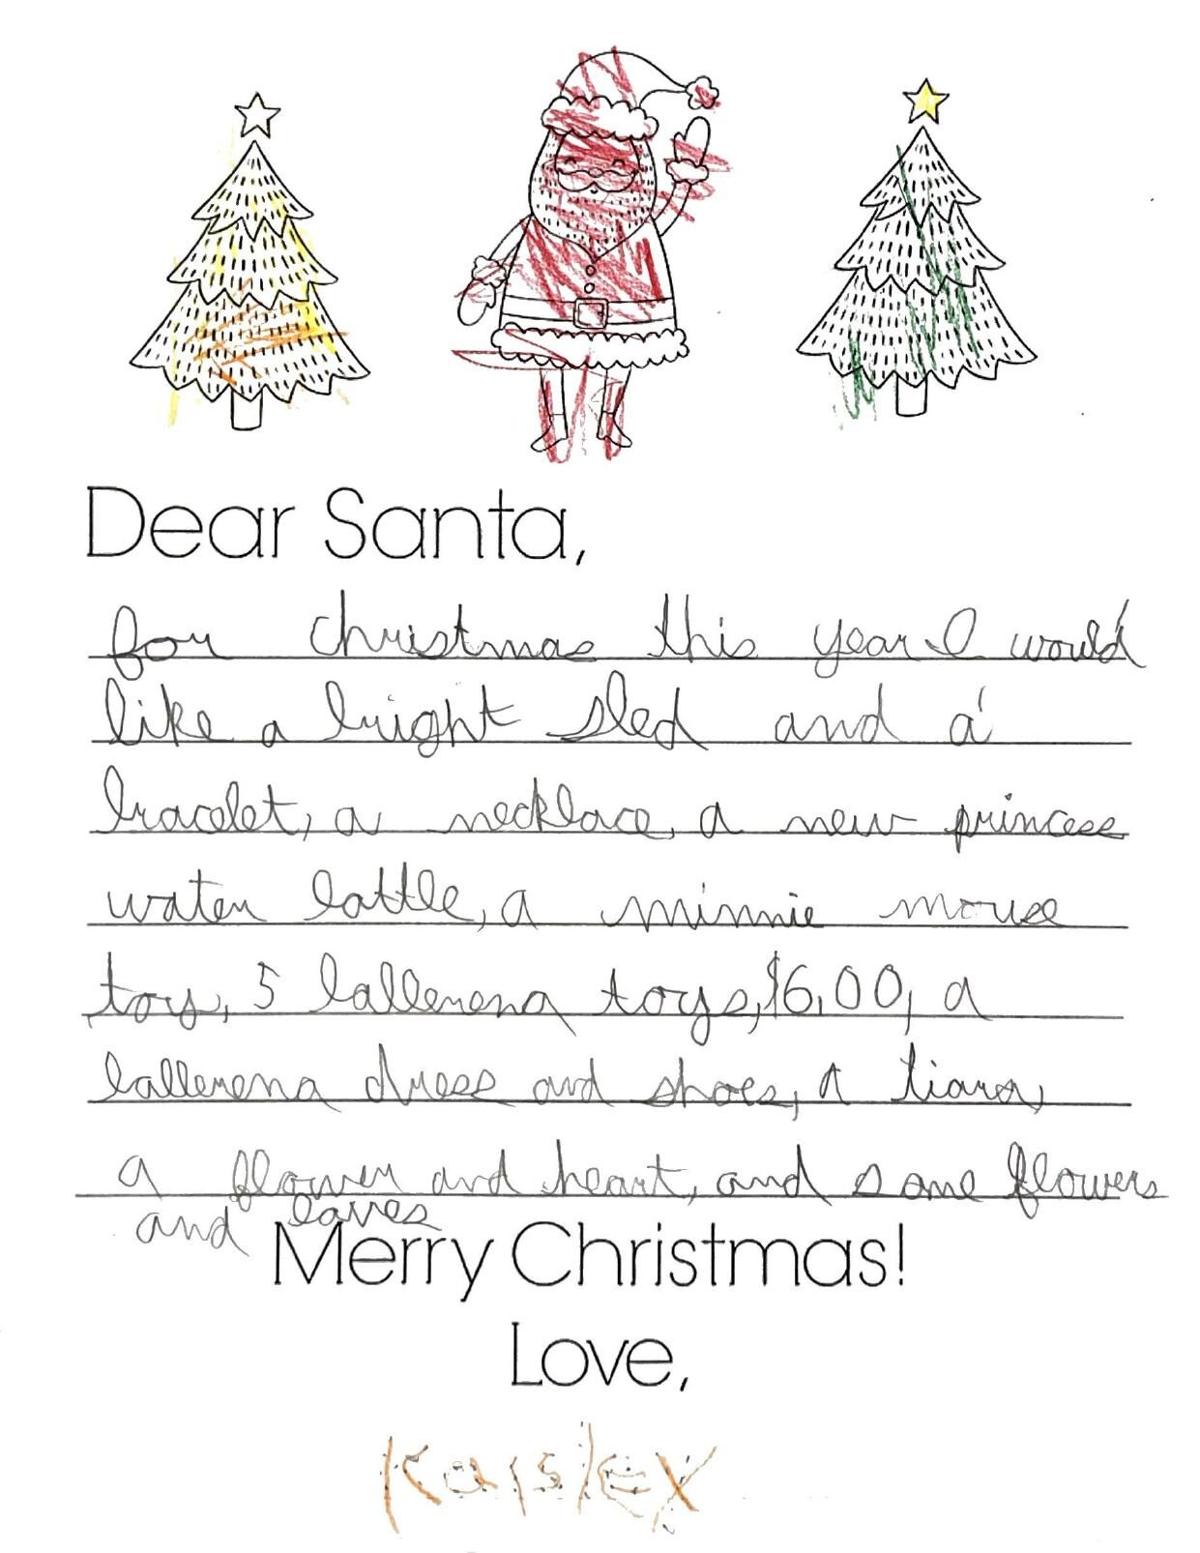 Dear Santa,
for christmas this year I would
like a bright sled and a
bracelet, a necklace, a new princess
water bottle, a minnie mouse
toy, 5 ballerena toys, $6.00, a
ballerena dress and shoes, a tiara,
a flower and heart, and some flowers
and leaves
Merry Christmas!
Love,
Karsley